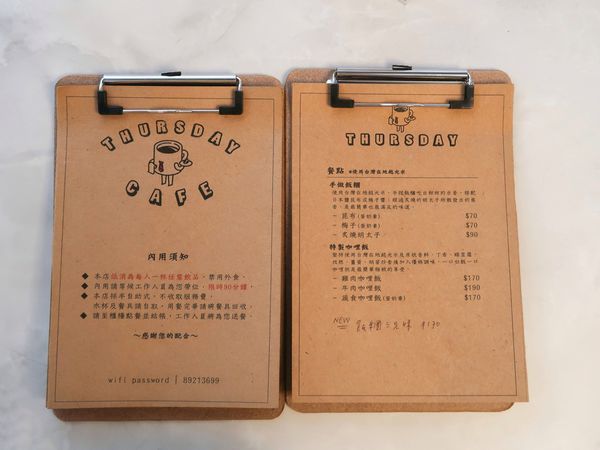 THURSDAY
CAFE
內用須知
◆ 本店低消為每人一杯任意飲品，禁用外食。
◆ 內用請等候工作人員為您帶位，限時90分鐘。
◆ 本店採半自助式，不收取服務費，
水杯及餐具請自取，用餐完畢請將餐具回收。
◆ 請至櫃檯點餐並結帳，工作人員將為您送餐。
～感謝您的配合～
wifi password | 89213699
THURSDAY
餐點 ※使用台灣在地越光米
手做飯糰
- 昆布(蛋奶素) $70
- 梅子(蛋奶素) $70
- 炙燒明太子 $90
特製咖哩飯
- 雞肉咖哩飯 $170
- 牛肉咖哩飯 $190
- 蔬食咖哩飯(蛋奶素) $170
NEW 飯糰三兄妹 $130